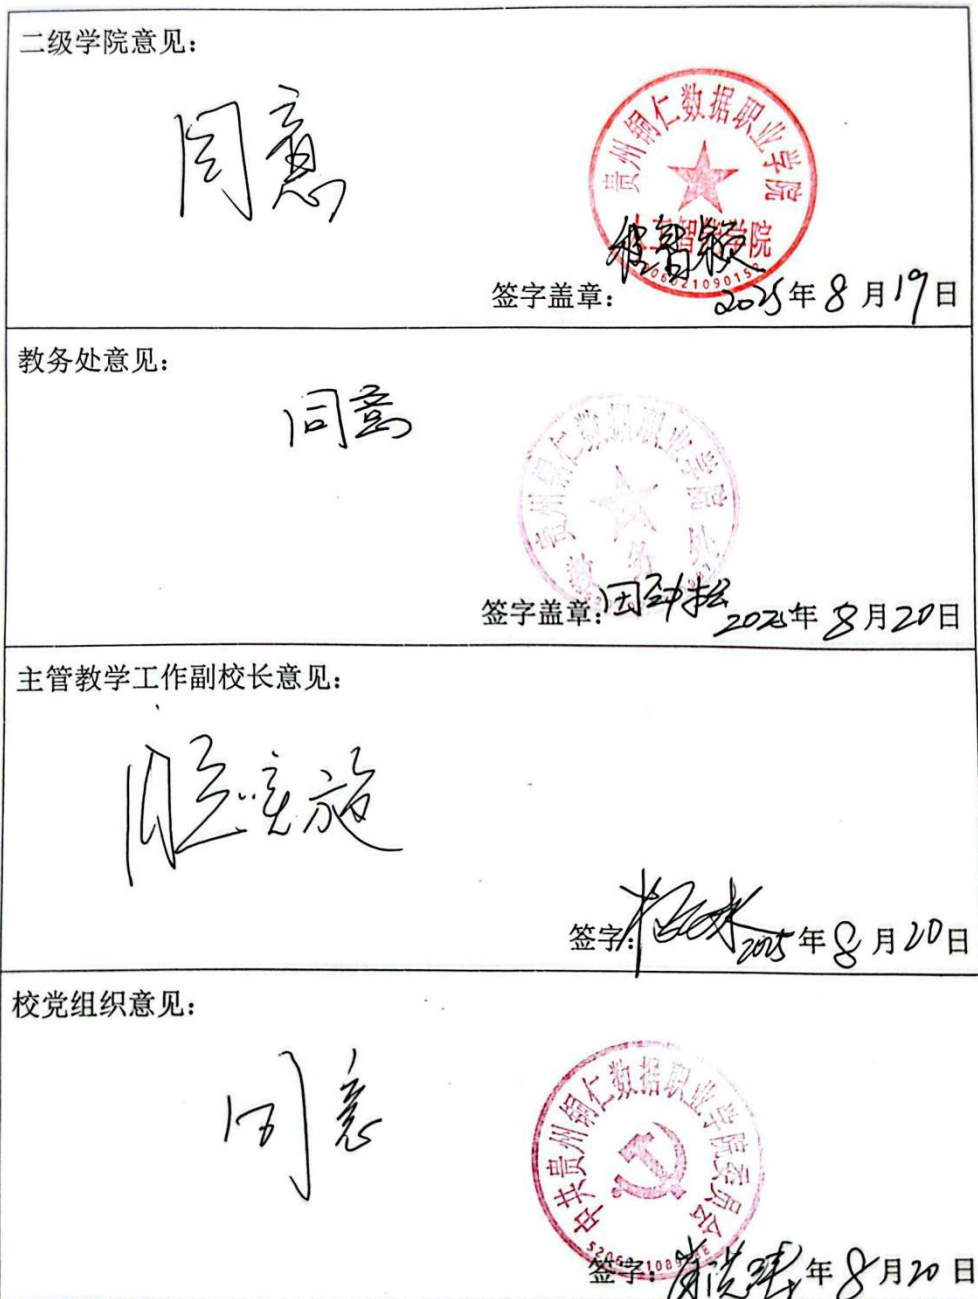 二级学院意见：
同意
贵州铜仁数据职业学院
人工智能学院
签字盖章： 2025年8月19日
教务处意见：
同意
贵州铜仁数据职业学院
教务
签字盖章： 2025年8月20日
主管教学工作副校长意见：
同意实施
签字： 2025年8月20日
校党组织意见：
同意
中共贵州铜仁数据职业学院委员会
签字： 年8月20日